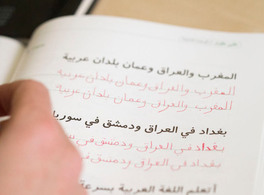 المغرب والعراق وعمان بلدان عربية
المغرب والعراق وعمان بلدان عربية
المغرب والعراق وعمان بلدان عربية
بغداد في العراق ودمشق في سوريا
بغداد في العراق ودمشق في
بغداد في العراق ودمشق في سور
أتعلم اللغة العربية بسرعة